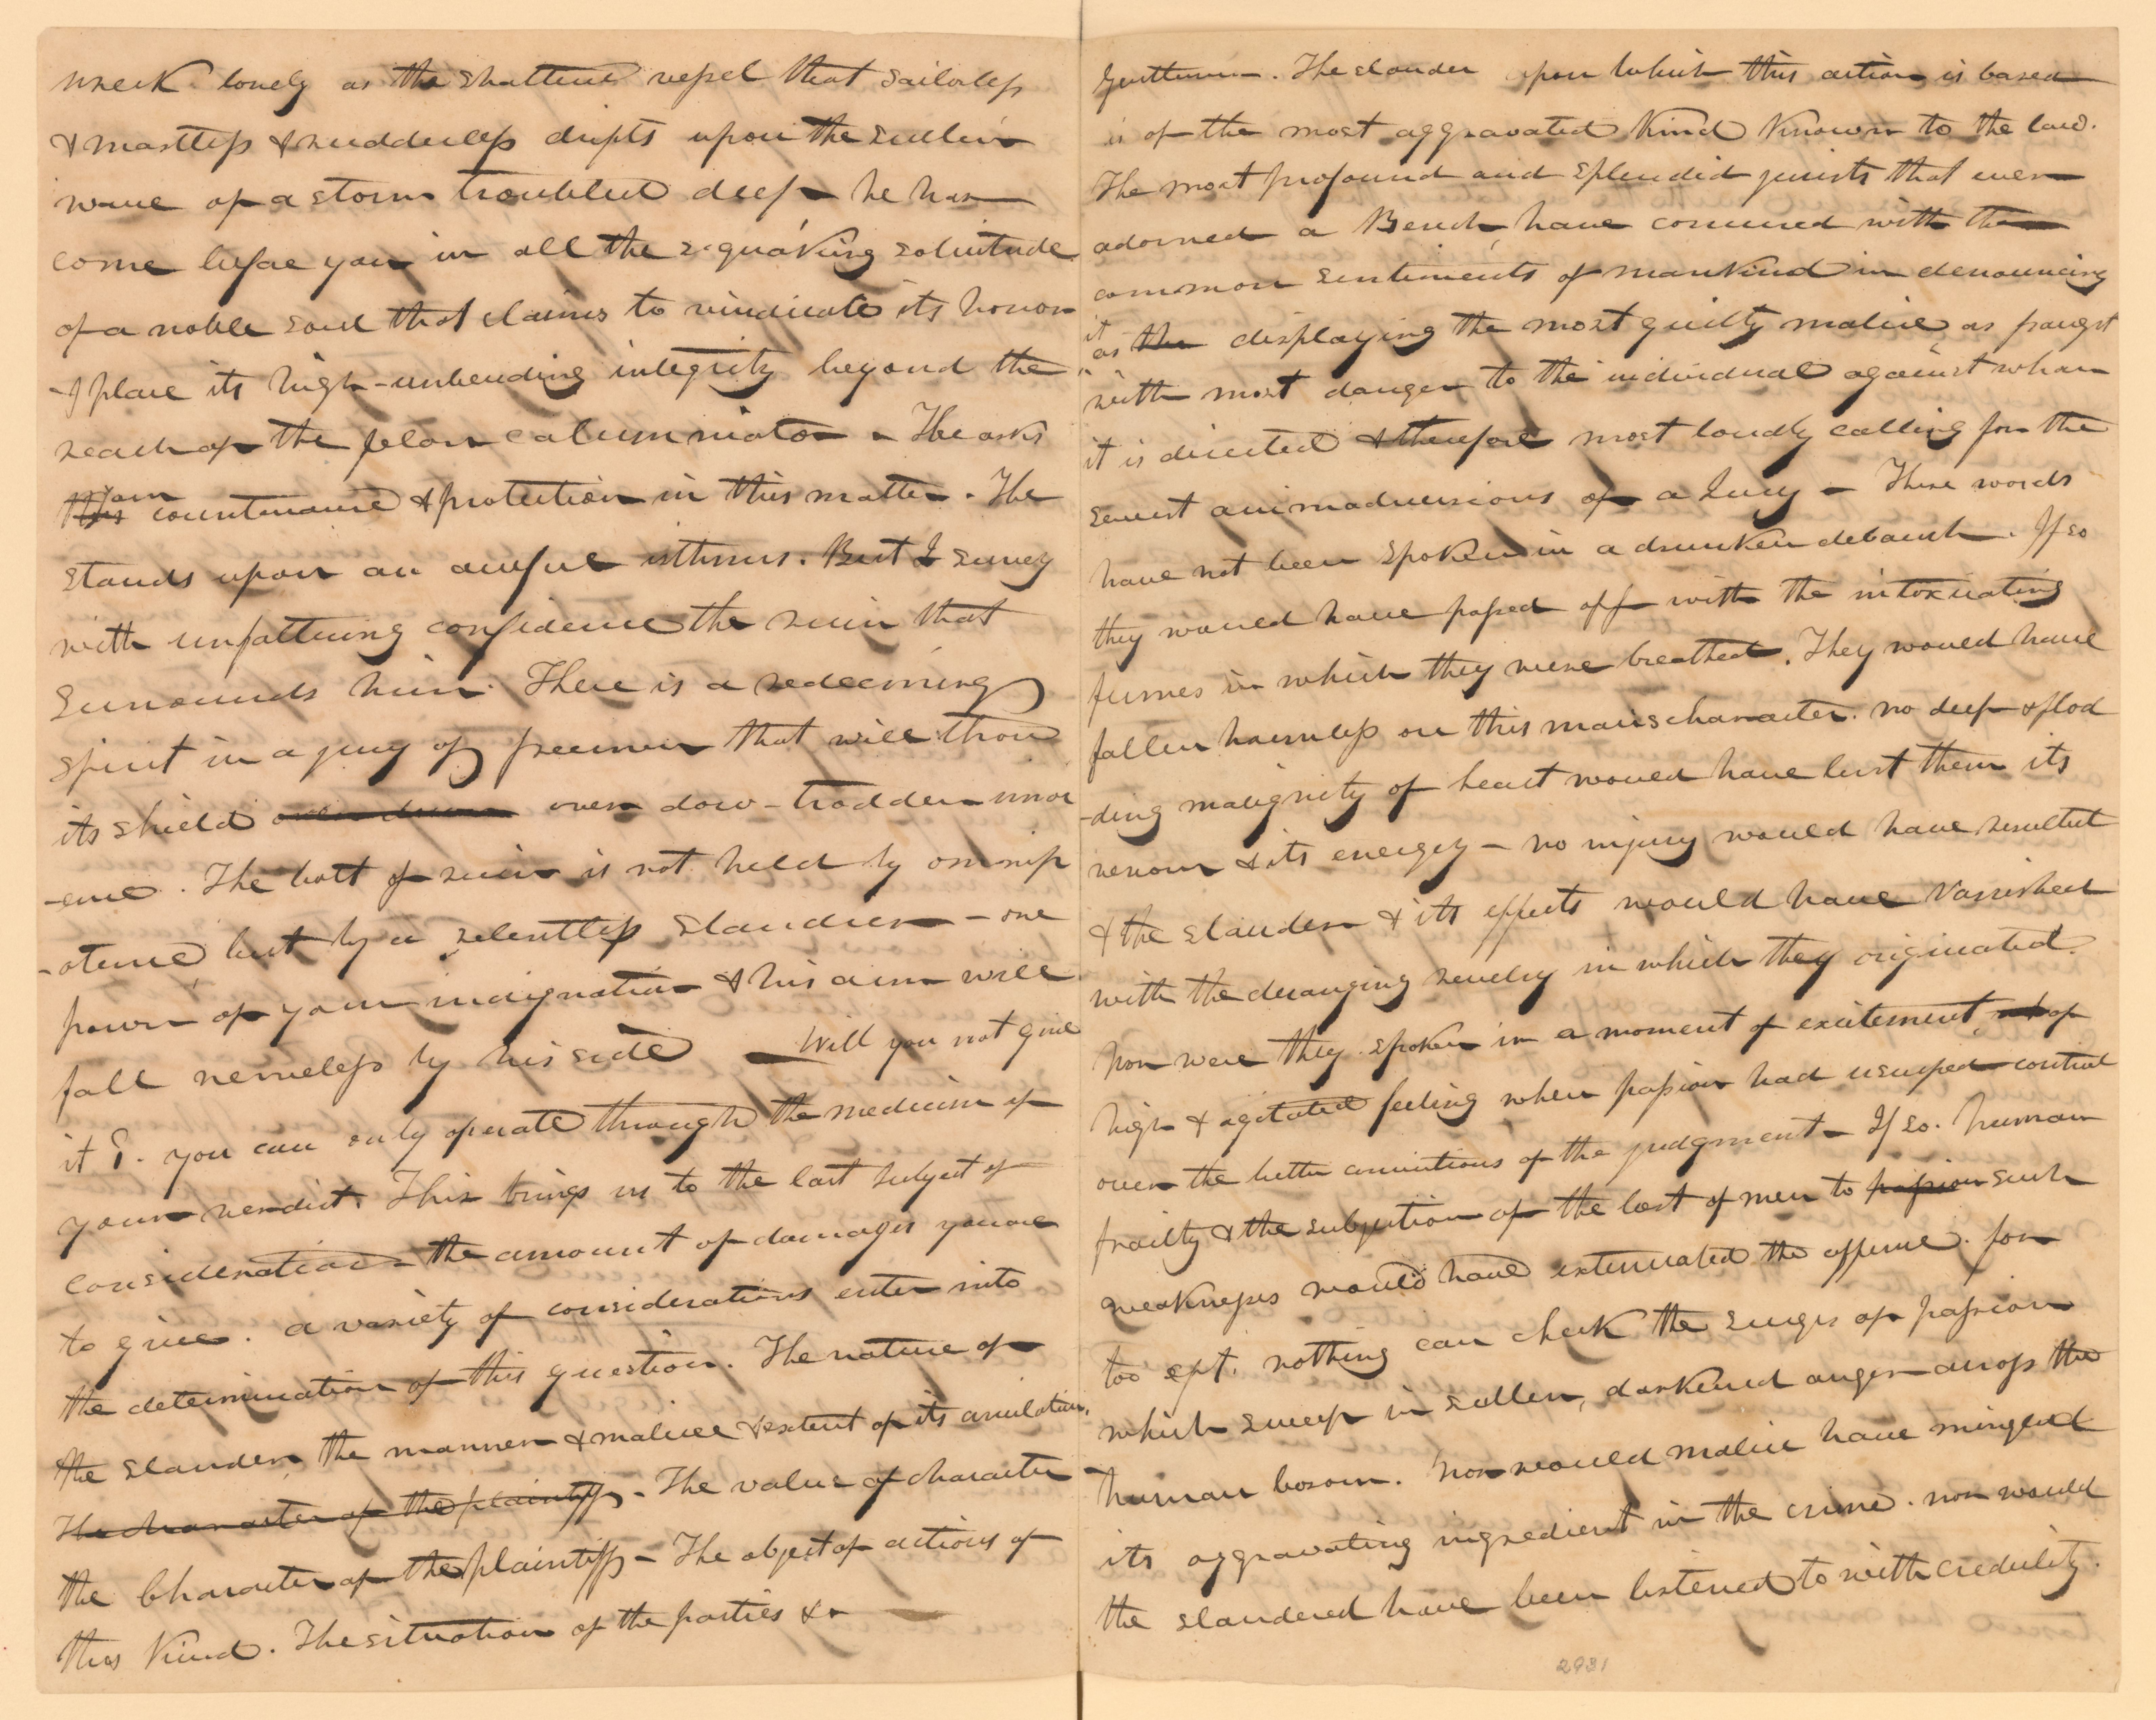 wreck lonely as the shattered vessel that sailorless
& mastless & rudderless drifts upon the sullen
wave of a storm troubled deep - he has
come before you in all the quaking solicitude
of a noble soul that claims to vindicate its honor
& place its high-unbending integrity beyond the
reach of the felon calumniator - He asks
your countenance & protection in this matter. He
stands upon an awful isthmus. But I survey
with unfaltering confidence the ruin that
surrounds him. There is a redeeming
spirit in a jury of freemen that will throw
its shield over dow-trodden innoc
-ence. The bolt of ruin is not held by omnip
-otence but by a relentless slanderer - one
power of your indignation & his aim will
fall nerveless by his side — Will you not give
it? you can only operate through the medium of
your verdict. This brings us to the last subject of
consideration - the amount of damages you are
to give. a variety of considerations enter into
the determination of this question. The nature of
the slander, the manner & malice & extent of its circulation.
The character of the plaintiff - The value of character
the Character of the plaintiff - The object of actions of
this Kind. The situation of the parties &c
Gentlemen. The slander upon which this action is based
is of the most aggravated Kind Known to the law.
The most profound and splendid jurists that ever
adorned a Bench, have concurred with the
common sentiments of mankind in denouncing
it as the displaying the most guilty malice, as fraugt
with most danger to the individual against whom
it is directed & therefore most loudly calling for the
severest animadversions of a Jury - These words
have not been spoken in a drunken debauch. If so
they would have passed off with the intoxicating
fumes in which they were breathed. They would have
fallen harmless on this mans character. no deep & plod
-ding malignity of heart would have lent them its
venom & its energy - no injury would have resulted
& the slander & its effects would have vanished
with the deranging revelry in which they originated.
Nor were they spoken in a moment of excitement, of
high & agitated feeling when passion had usurped control
over the better convictions of the judgment - If so. human
frailty & the subjection of the best of men to passion such
weaknesses would have extenuated the offence. for
too oft. nothing can check the surges of passion
which sweep in sullen, darkened anger across the
human bosom. Nor would malice have mingled
its aggravating ingredient in the crime. nor would
the slandered have been listened to with credulity.
2931